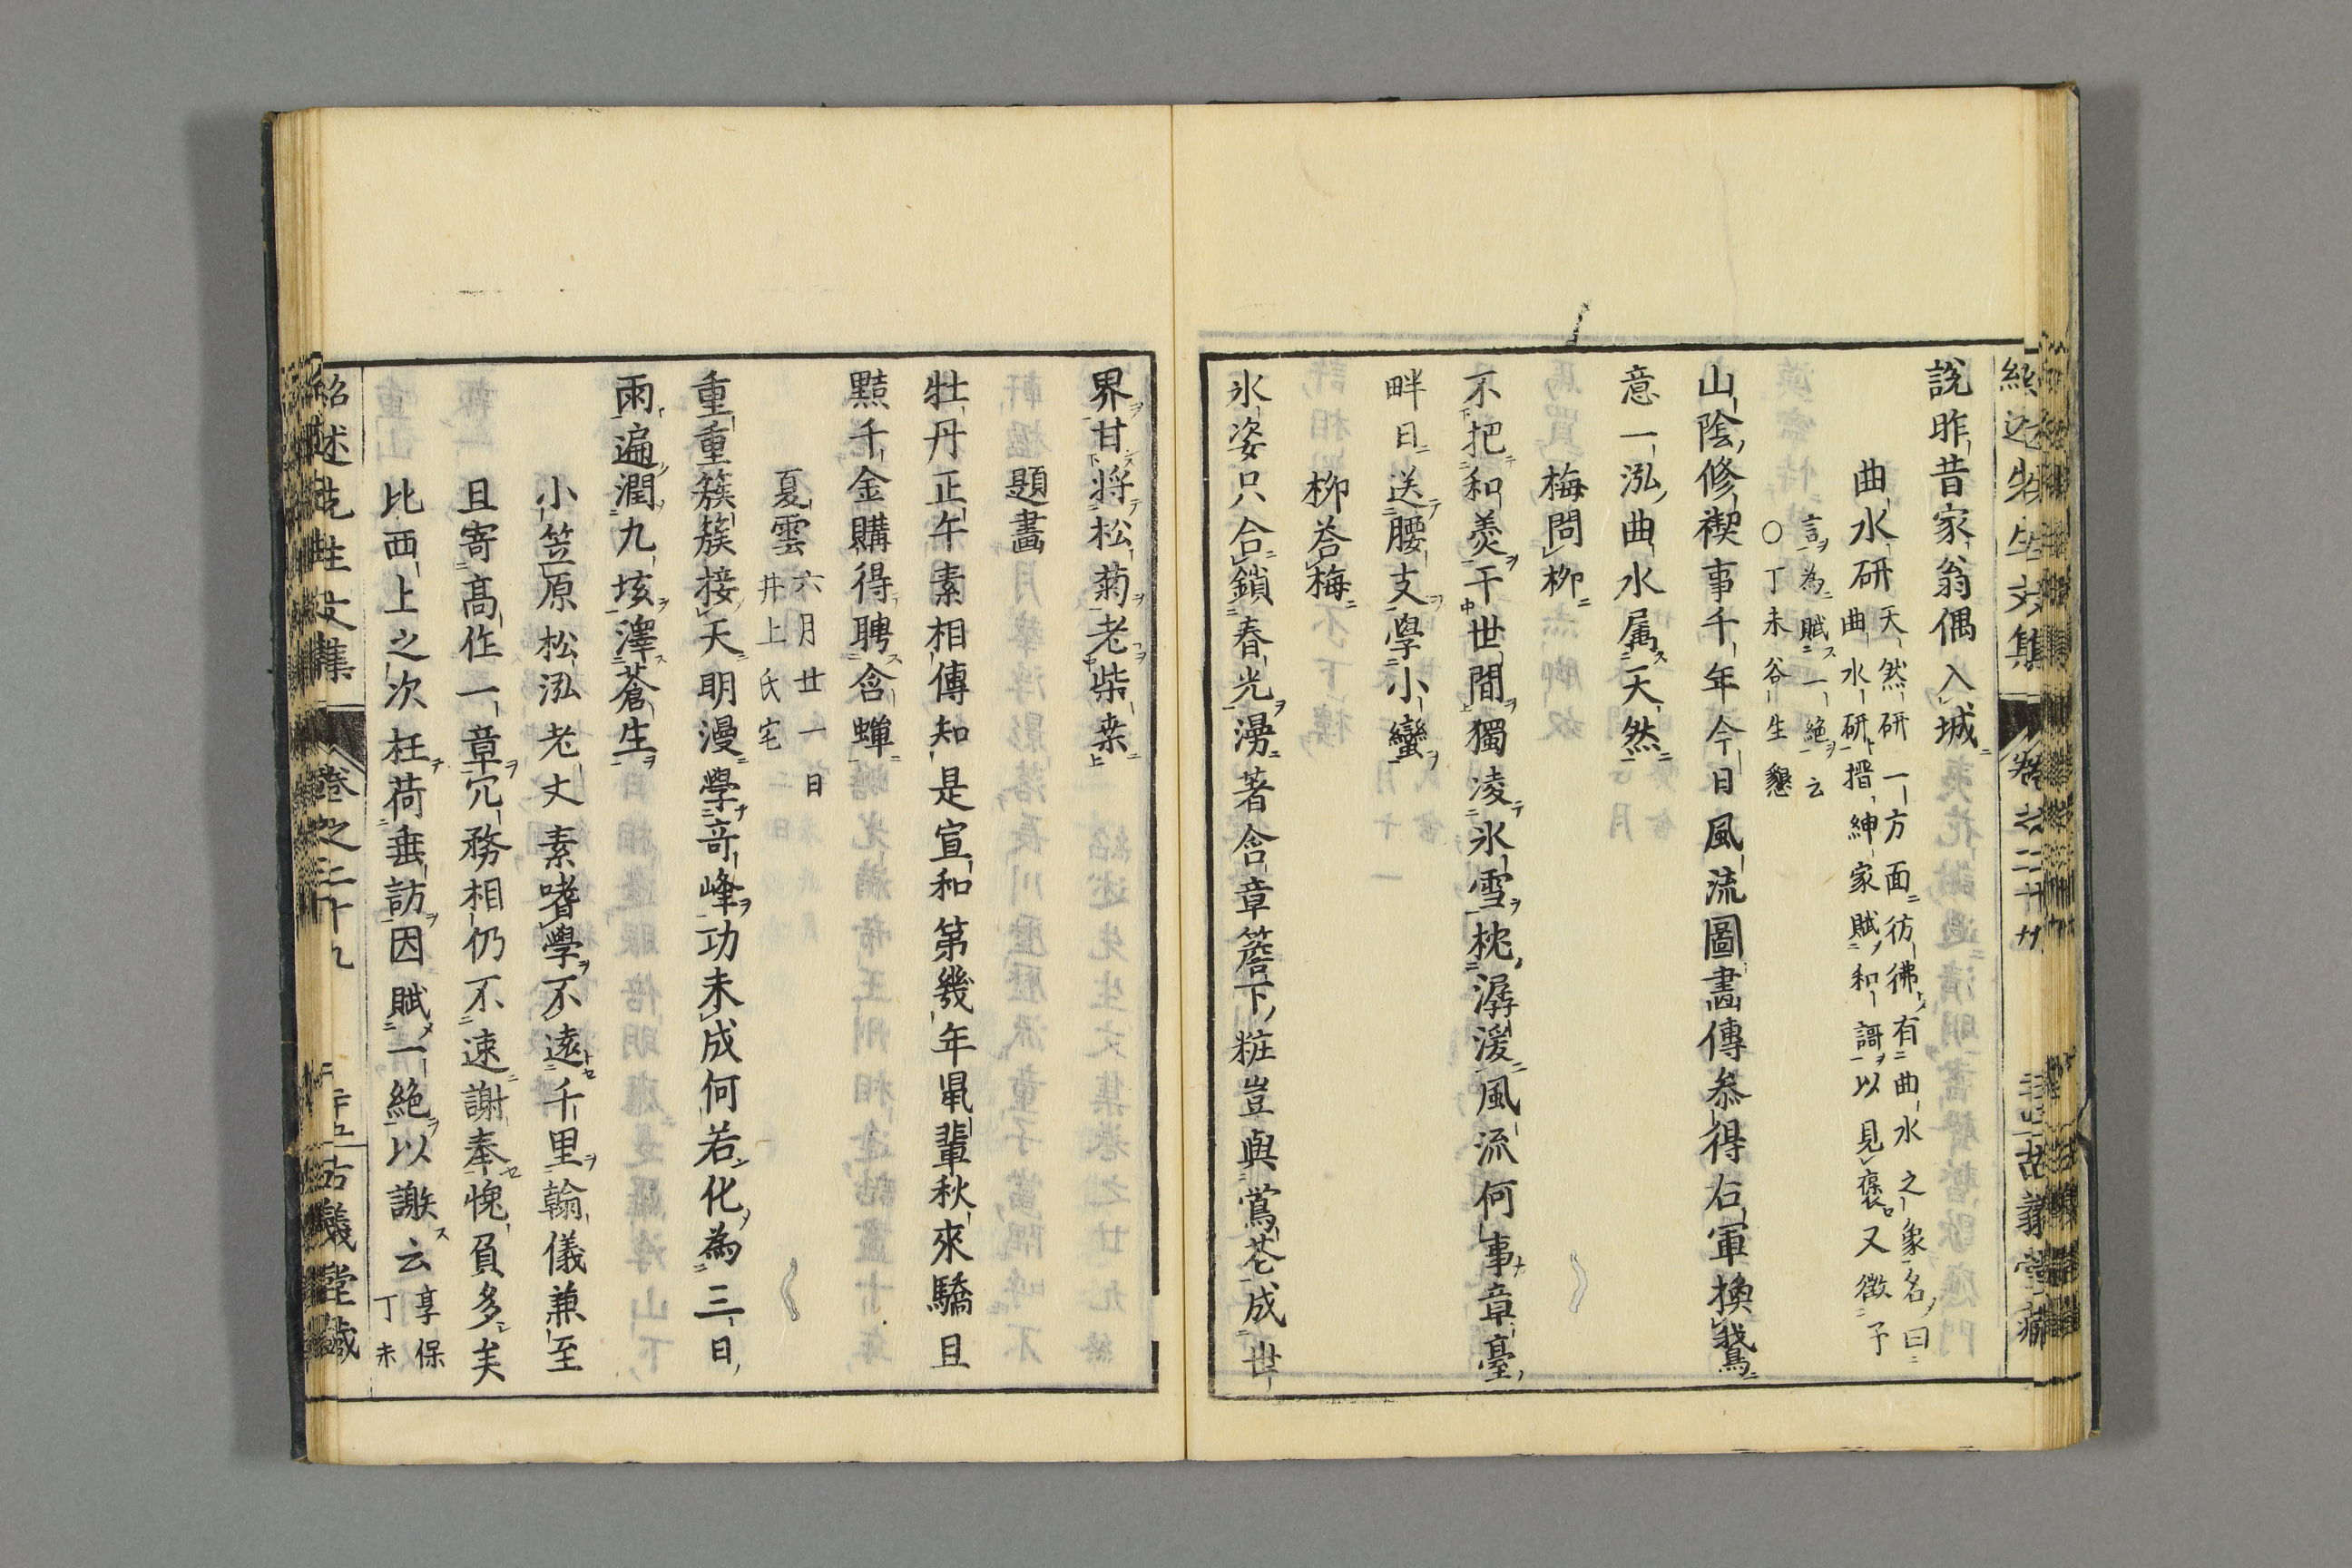 説昨昔家翁偶入城
曲水研
天然研一方面彷彿有曲水之象名曰
曲水研搢紳家賦和謌以見褒又徴予
言為賦一絶云
○丁未谷生懇
山陰修禊事千年今日風流圖畫傳叅得右軍換鵞
意一泓曲水属天然
梅問柳
不把和羮干世間獨凌氷雪枕潺湲風流何事章臺
畔日送腰支學小蠻
柳荅梅
氷姿只合鎖春光漫著含章簷下粧豈與鶯花成世
界甘将松菊老柴桒
題畫
牡丹正午素相傳知是宣和第幾年鼂輩秋來驕且
黠千金購得聘含蟬
夏雲
六月廿一日
井上氏宅
重重簇簇接天明漫學竒峰功未成何若化為三日
雨遍潤九垓澤蒼生
小笠原松泓老丈素嗜學不遠千里翰儀兼至
且寄髙作一章冗務相仍不速謝奉愧負多矣
比西上之次枉荷垂訪因賦一絶以謝云
享保
丁未
紹述先生文集
卷之二十九
二十五
古義堂藏